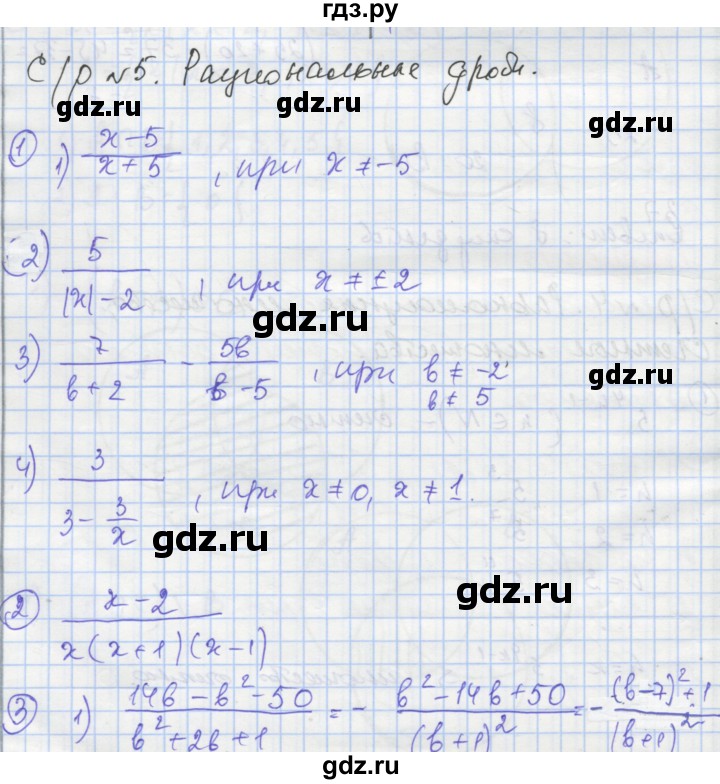 гдз.ру
С/р №5. Рациональные дроби.
gdz.ru
gdz.ru
① 1) (x-5)/(x+5), при x ≠ -5
gdz.ru
gdz.ru
2) 5/(|x|-2), при x ≠ ±2
gdz.ru
gdz.ru
3) 7/(b+2) - 5b/(b-5), при b ≠ -2
b ≠ 5
gdz.ru
gdz.ru
4) 3/(3 - 3/x), при x ≠ 0, x ≠ 1.
gdz.ru
gdz.ru
② (x-2)/(x(x+1)(x-1))
③ 1) (14b-b²-50)/(b²+2b+1) = - (b²-14b+50)/(b+1)² = - ((b-7)²+1)/(b+1)²
gdz.ru
gdz.ru